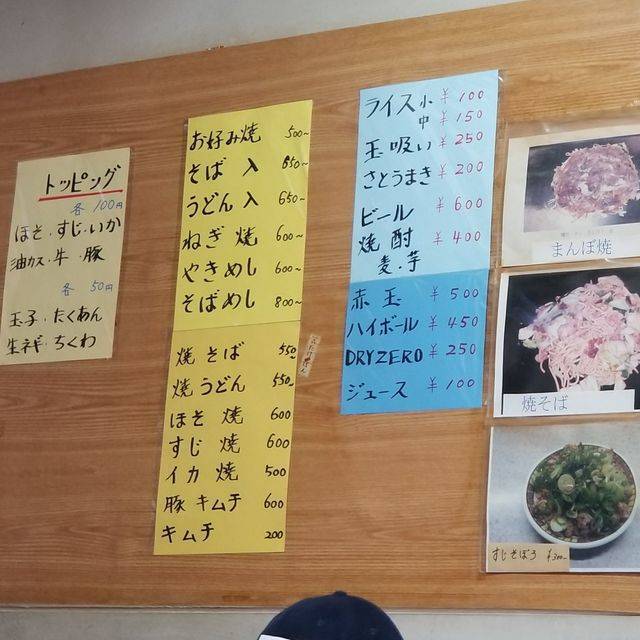 トッピング
各 100円
ほそ・すじ・いか
油カス・牛・豚
各 50円
玉子・たくあん
生ネギ・ちくわ
お好み焼 500~
そば 入 650~
うどん入 650~
ねぎ 焼 600~
やきめし 600~
そばめし 800~
焼 そば 550
焼うどん 550
ほそ 焼 600
すじ 焼 600
イカ 焼 500
豚 キムチ 600
キムチ 200
ライス小 ¥100
中 ¥150
玉吸い ¥250
さとうまき ¥200
ビール ¥600
焼 酎 ¥400
麦・芋
赤 玉 ¥500
ハイボール ¥450
DRYZERO ¥250
ジュース ¥100
まんぼ焼
焼そば
すじそぼろ ¥300~